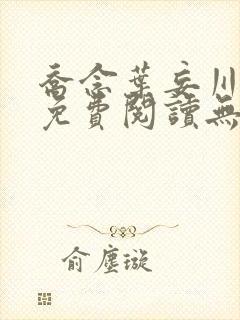 喬念葉妄川
免費閱讀無
俞塵璇